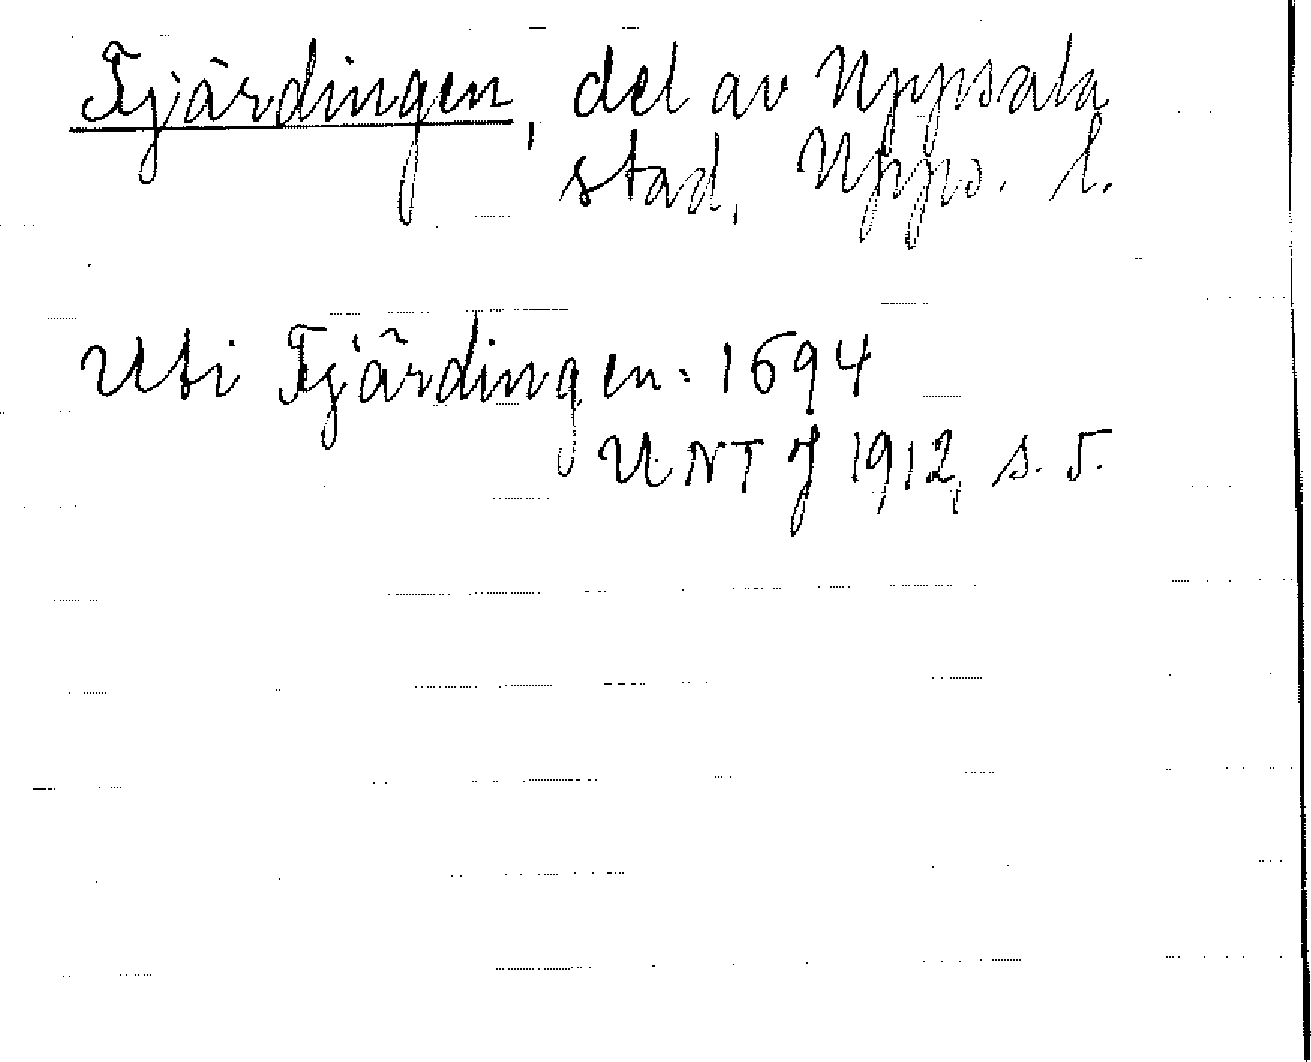 Fjärdingen, del av Uppsala
stad, Upps. l.
Uti Fjärdingen: 1694
UNT J 1912, s. 5.